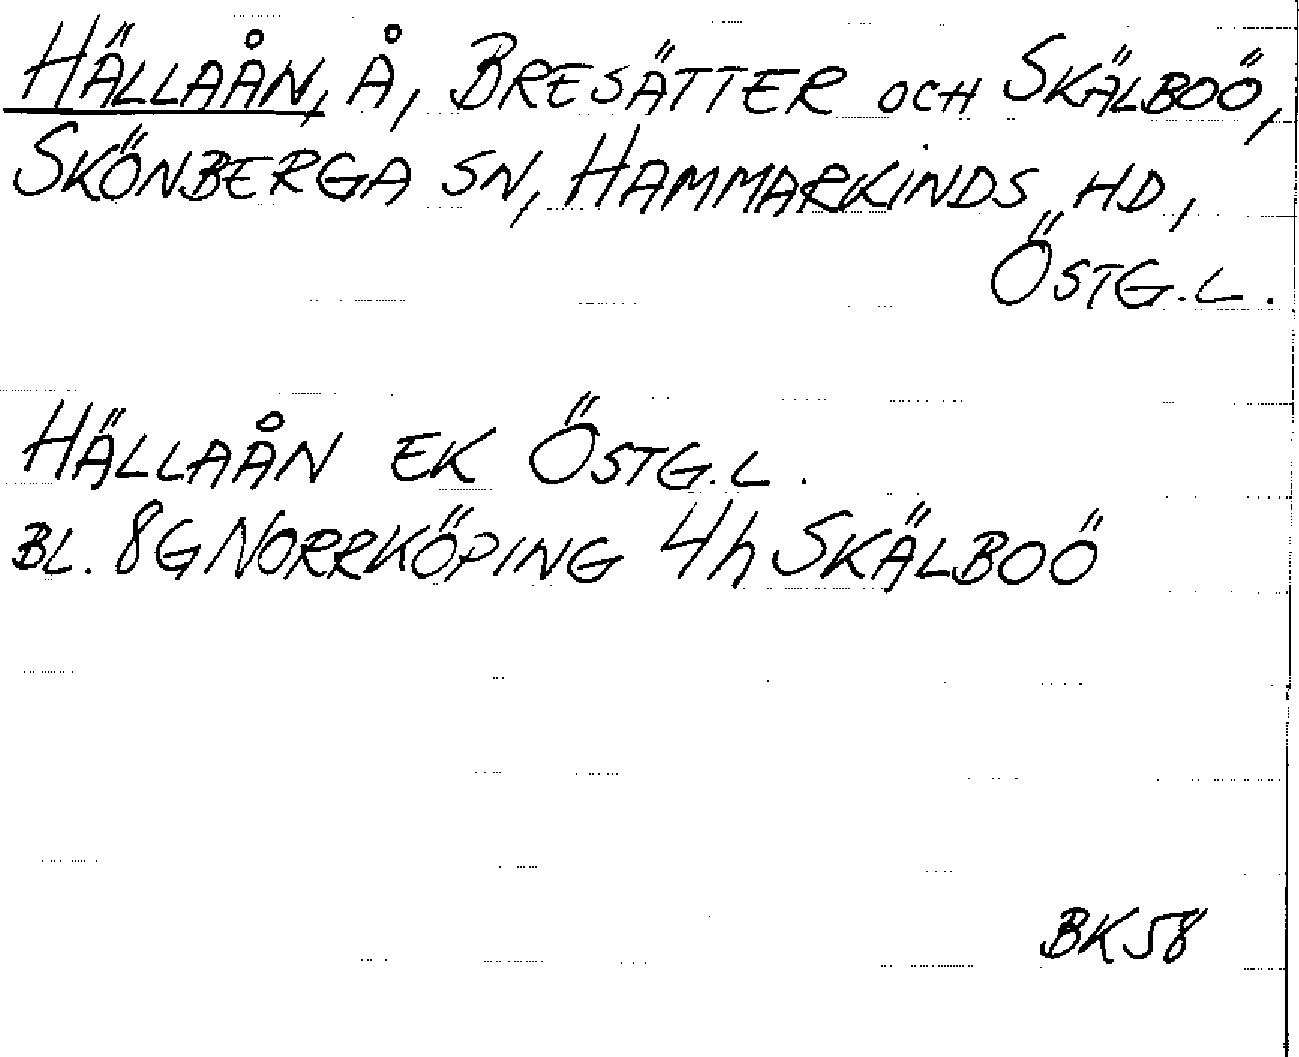 HÄLLAÅN, Å, BRESÄTTER OCH SKÄLBOÖ,
SKÖNBERGA SN, HAMMARKINDS HD,
ÖSTG.L.
HÄLLAÅN EK ÖSTG.L.
BL. 8G NORRKÖPING 4h SKÄLBOÖ
BK58